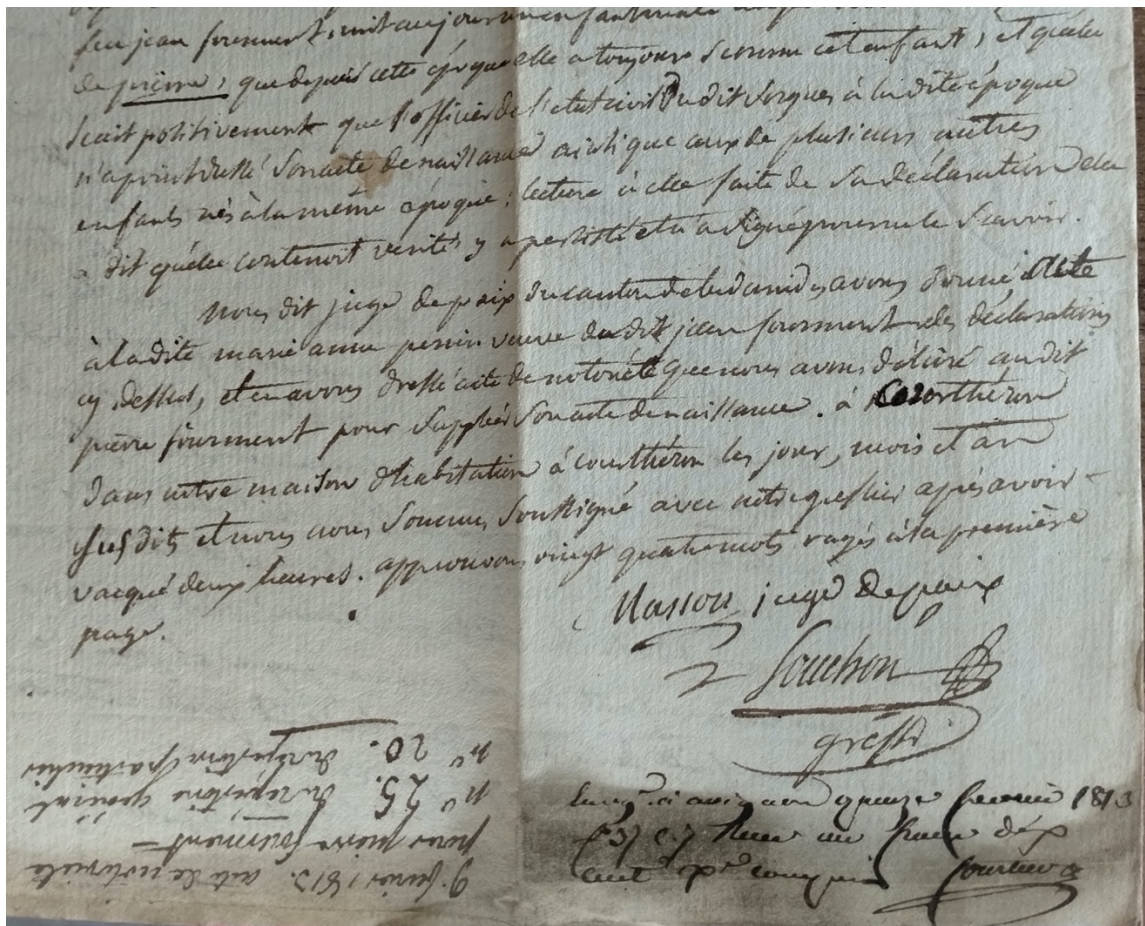 feu jean fourment, mit au jour un enfant
de pierre, que depuis cette époque elle a toujours connu cet enfant, et quelle
scait positivement que l'officier de l'etat civil du dit Sorgues à la dite époque
n'a point dressé son acte de naissance ainsi que ceux de plusieurs autres
enfants nés à la même époque; lecture à elle faite de sa déclaration elle
a dit quelle contenoit verité, y a persisté et n'a signé pour ne le scavoir.
nous dit juge de paix du canton de bedarrides, avons donné Acte
à la dite marie anne veuve du dit jean fourment des déclarations
cy dessus, et en avons dressé acte de notorieté que nous avons délivré au dit
pierre fourment pour suppléer son acte de naissance. à Courthézon
dans notre maison d'habitation à courthézon les jour, mois et an
susdits et nous nous sommes soussigné avec notre greffier après avoir
vacqué deux heures. approuvons vingt quatre mots rayés à la première
page.
Masson juge de paix
Souchon
greffi
Enreg. à avignon quinze fevrier 1813
f° 37 c. 7 Reçu un franc dix
cent
9. fevrier 1813. acte de notorieté
pour pierre fourment
n° 25. du répertoire général
n° 20. du répertoire particulier